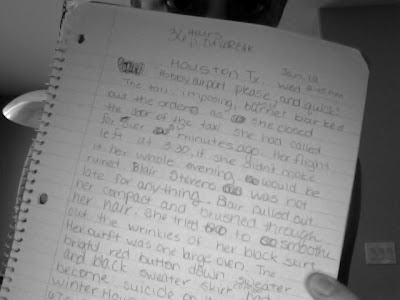 36 Hours
till DAYBREAK
HOUSTON, Tx. Jan. 12
Wed 2:45 P.M.
Hobby airport please, and quick!
The tall, imposing, barked
out the orders as she closed
the door of the taxi she had called
for over minutes ago. Her flight
left at 3:30, if she didn't make
it her whole evening would be
ruined. Blair Stevens was not
late for anything. Blair pulled out
her compact and brushed through
her hair. She tried to smooth
out the wrinkles of her black skirt.
Her outfit was one large oven. The
bright red button down sweater
and black sweater skirt had
become suicide
winter Hous